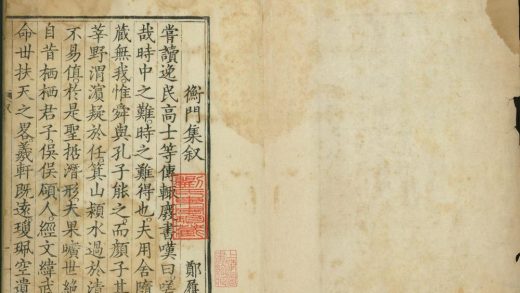 衡門集叙 鄭履
嘗讀逸民高士等傳輒廢書嘆曰嗟
哉時中之難時之難得也夫用舍隨
藏無我惟舜與孔子能之而顏子其
莘野渭濱疑於任箕山潁水過於清
不易慎於是聖哲潛形夫果曠世絕
自昔栖栖君子俣俣碩人經文緯武
命丗扶天之畧羲軒既遠瓊珮空遺